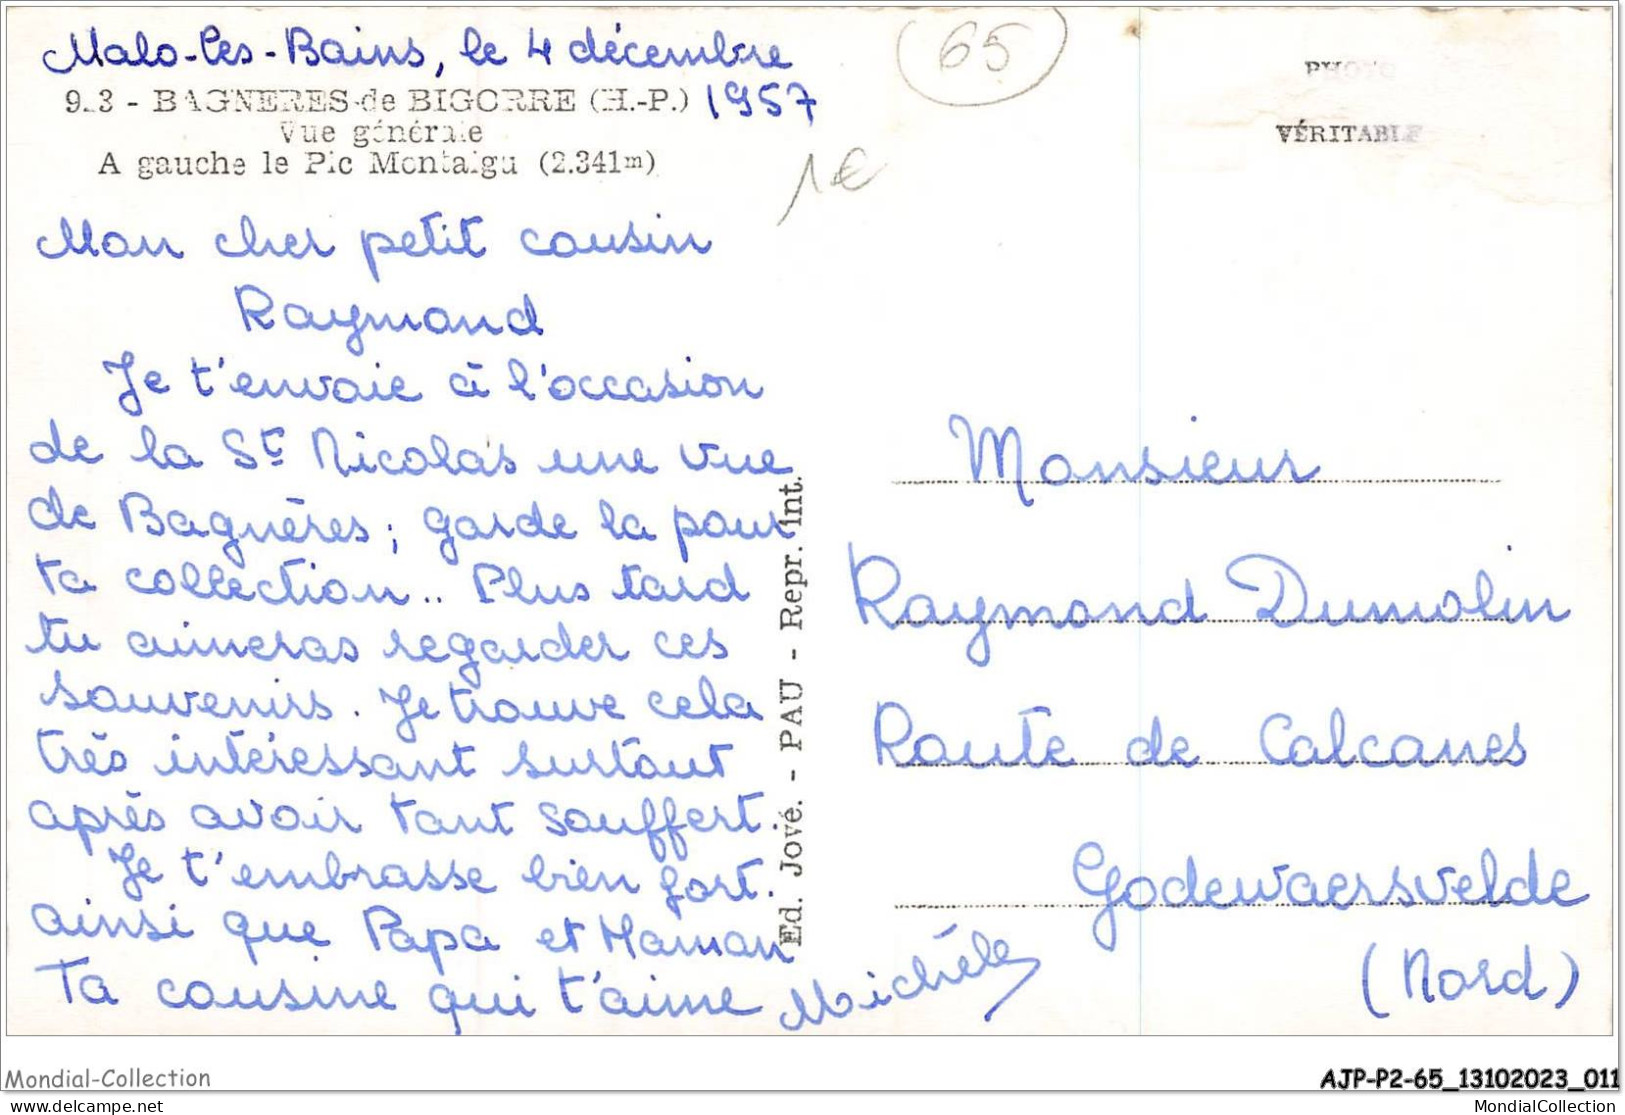 Malo-les-Bains, le 4 décembre
1957
9.3 - BAGNERES-de BIGORRE (H.-P.)
Vue générale
A gauche le Pic Montaigu (2.341m)
65
1€
PHOTO
VÉRITABLE
Mon cher petit cousin
Raymond
Je t'envoie à l'occasion
de la St Nicolas une vue
de Bagnères ; garde la pour
ta collection.. Plus tard
tu aimeras regarder ces
souvenirs. Je trouve cela
très intéressant surtout
après avoir tant souffert.
Je t'embrasse bien fort.
ainsi que Papa et Maman
Ta cousine qui t'aime Michèle
Ed. Jové. - PAU - Repr. int.
Monsieur
Raymond Dumolin
Route de Calcanes
Godewaersvelde
(Nord)
Mondial-Collection
AJP-P2-65_13102023_011
delcampe.net
MondialCollection